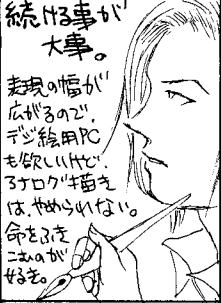 続ける事が
大事。
表現の幅が
広がるので、
デジ絵用PC
も欲しいけど、
アナログ描き
は、やめられない。
命をふき
こむのが
好き。